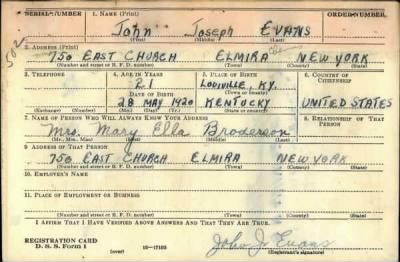 SERIAL NUMBER 1. NAME (Print) ORDER NUMBER
John Joseph EVANS
(First) (Middle) (Last)
502
2. ADDRESS (Print)
750 EAST CHURCH ELMIRA NEW YORK
(Number and street or R. F. D. number) (Town) (County) (State)
3. TELEPHONE 4. AGE IN YEARS 5. PLACE OF BIRTH 6. COUNTRY OF CITIZENSHIP
21 LOUIVILLE, KY.
DATE OF BIRTH (Town or county)
28 MAY 1920 KENTUCKY UNITED STATES
(Exchange) (Number) (Mo.) (Day) (Yr.) (State or country)
7. NAME OF PERSON WHO WILL ALWAYS KNOW YOUR ADDRESS 8. RELATIONSHIP OF THAT PERSON
Mrs. Mary Ella Broderson
(Mr., Mrs., Miss) (First) (Middle) (Last)
9. ADDRESS OF THAT PERSON
750 EAST CHURCH ELMIRA NEW YORK
(Number and street or R. F. D. number) (Town) (County) (State)
10. EMPLOYER'S NAME
11. PLACE OF EMPLOYMENT OR BUSINESS
(Number and street or R. F. D. number) (Town) (County) (State)
I AFFIRM THAT I HAVE VERIFIED ABOVE ANSWERS AND THAT THEY ARE TRUE.
REGISTRATION CARD
D. S. S. Form 1 (over) 16—17105 John J. Evans
(Registrant's signature)